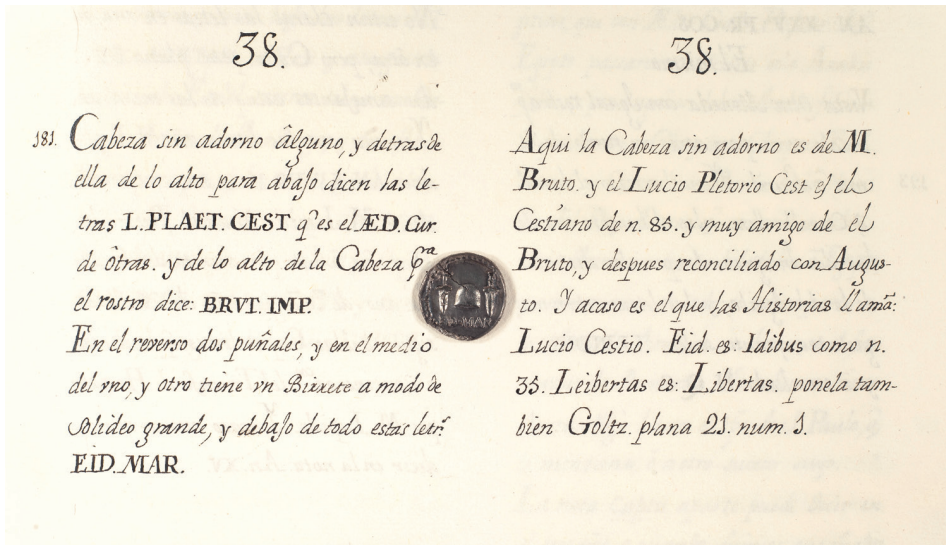 38.
181. Cabeza sin adorno âlguno, y detras de
ella de lo alto para abajo dicen las le-
tras L. PLAET. CEST q.^e es el ÆD. Cur.
de ôtras. y de lo alto de la Cabeza p.^ra
el rostro dice: BRVT. IMP.
En el reverso dos puñales, y en el medio
del vno, y otro tiene vn Birrete a modo de
solideo grande, y debajo de todo estas letr.^s
EID. MAR.
38.
Aqui la Cabeza sin adorno es de M.
Bruto. y el Lucio Pletorio Cest es el
Cestiano de n. 83. y muy amigo de el
Bruto, y despues reconciliado con Augus-
to. Y acaso es el que las Historias llamã:
Lucio Cestio. Eid. es: Idibus como n.
35. Leibertas es: Libertas. ponela tam-
bien Goltz. plana 21. num. 1.
EID MAR